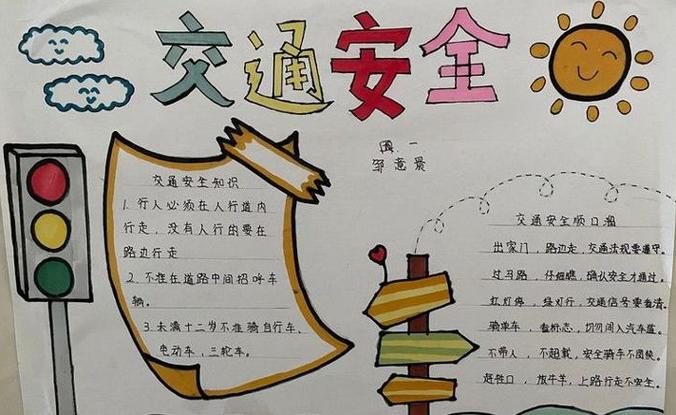 交通安全
圆一
邹意景
交通安全知识
1.行人必须在人行道内
行走，没有人行的要在
路边行走
2.不准在道路中间招呼车
辆。
3.未满十二岁不准骑自行车、
电动车，三轮车。
交通安全顺口溜
出家门，路边走，交通法规要遵守。
过马路，仔细瞧，确认安全才通过。
红灯停，绿灯行，交通信号要看清。
骑单车，看标志，切勿闯入汽车道。
不带人，不超载，安全骑车不图快。
赶牲口，放牛羊，上路行走不安全。